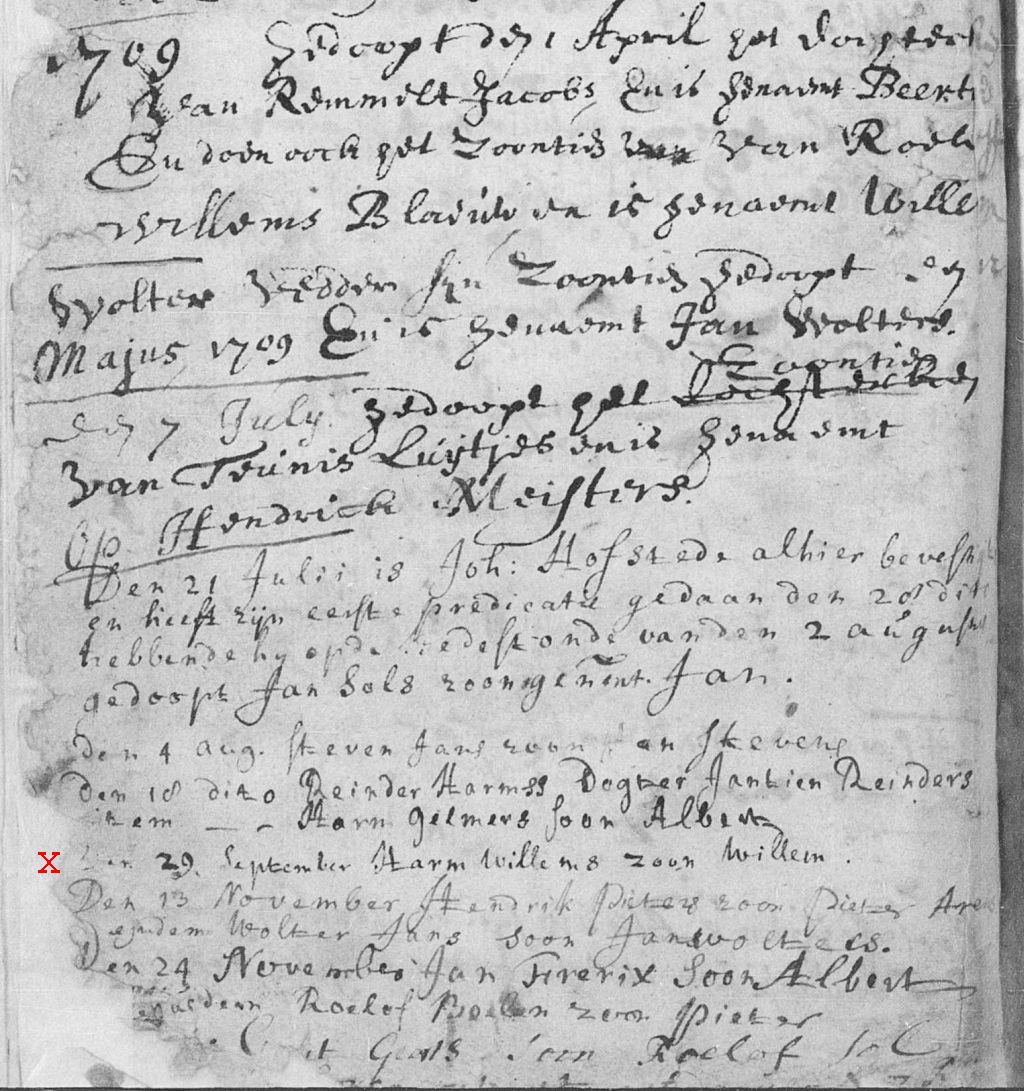 1709 Gedoopt den 1 April het
van Remmelt Jacobs En is genaemt Beert
En doen oock het Zoontien van Roel
Willems Blauw en is genaemt Wille
Wolter Vedder syn Zoontien gedoopt den
Majus 1709 En is genaemt Jan Wolters.
Zoontien
den 7 July gedoopt het
van Teunis Luytjes en is genaemt
Hendrick Meisters.
Op
Den 21 Julii is Joh: Hofstede alhier bevest
en heeft zijn eerste predicatie gedaan den 28 dit
hebbende hy op de bedestonde van den 2 august
gedoopt Jan Sols zoon genent. Jan.
den 4 aug. Steven Jans zoon Jan Stevens
Den 18 dito Reinder Harmss Dogter Jantien Reinders
item — - Harm Gelmers soon Albert
X Den 29. September Harm Willems zoon Willem.
Den 13 November Hendrik Pieters zoon Pieter
ejusdem Wolter Jans soon Jan Wolters.
Den 24 November Jan Frerix Soon Albert
ejusdem Roelof zoon Pieter
Geerts Soon Roelof